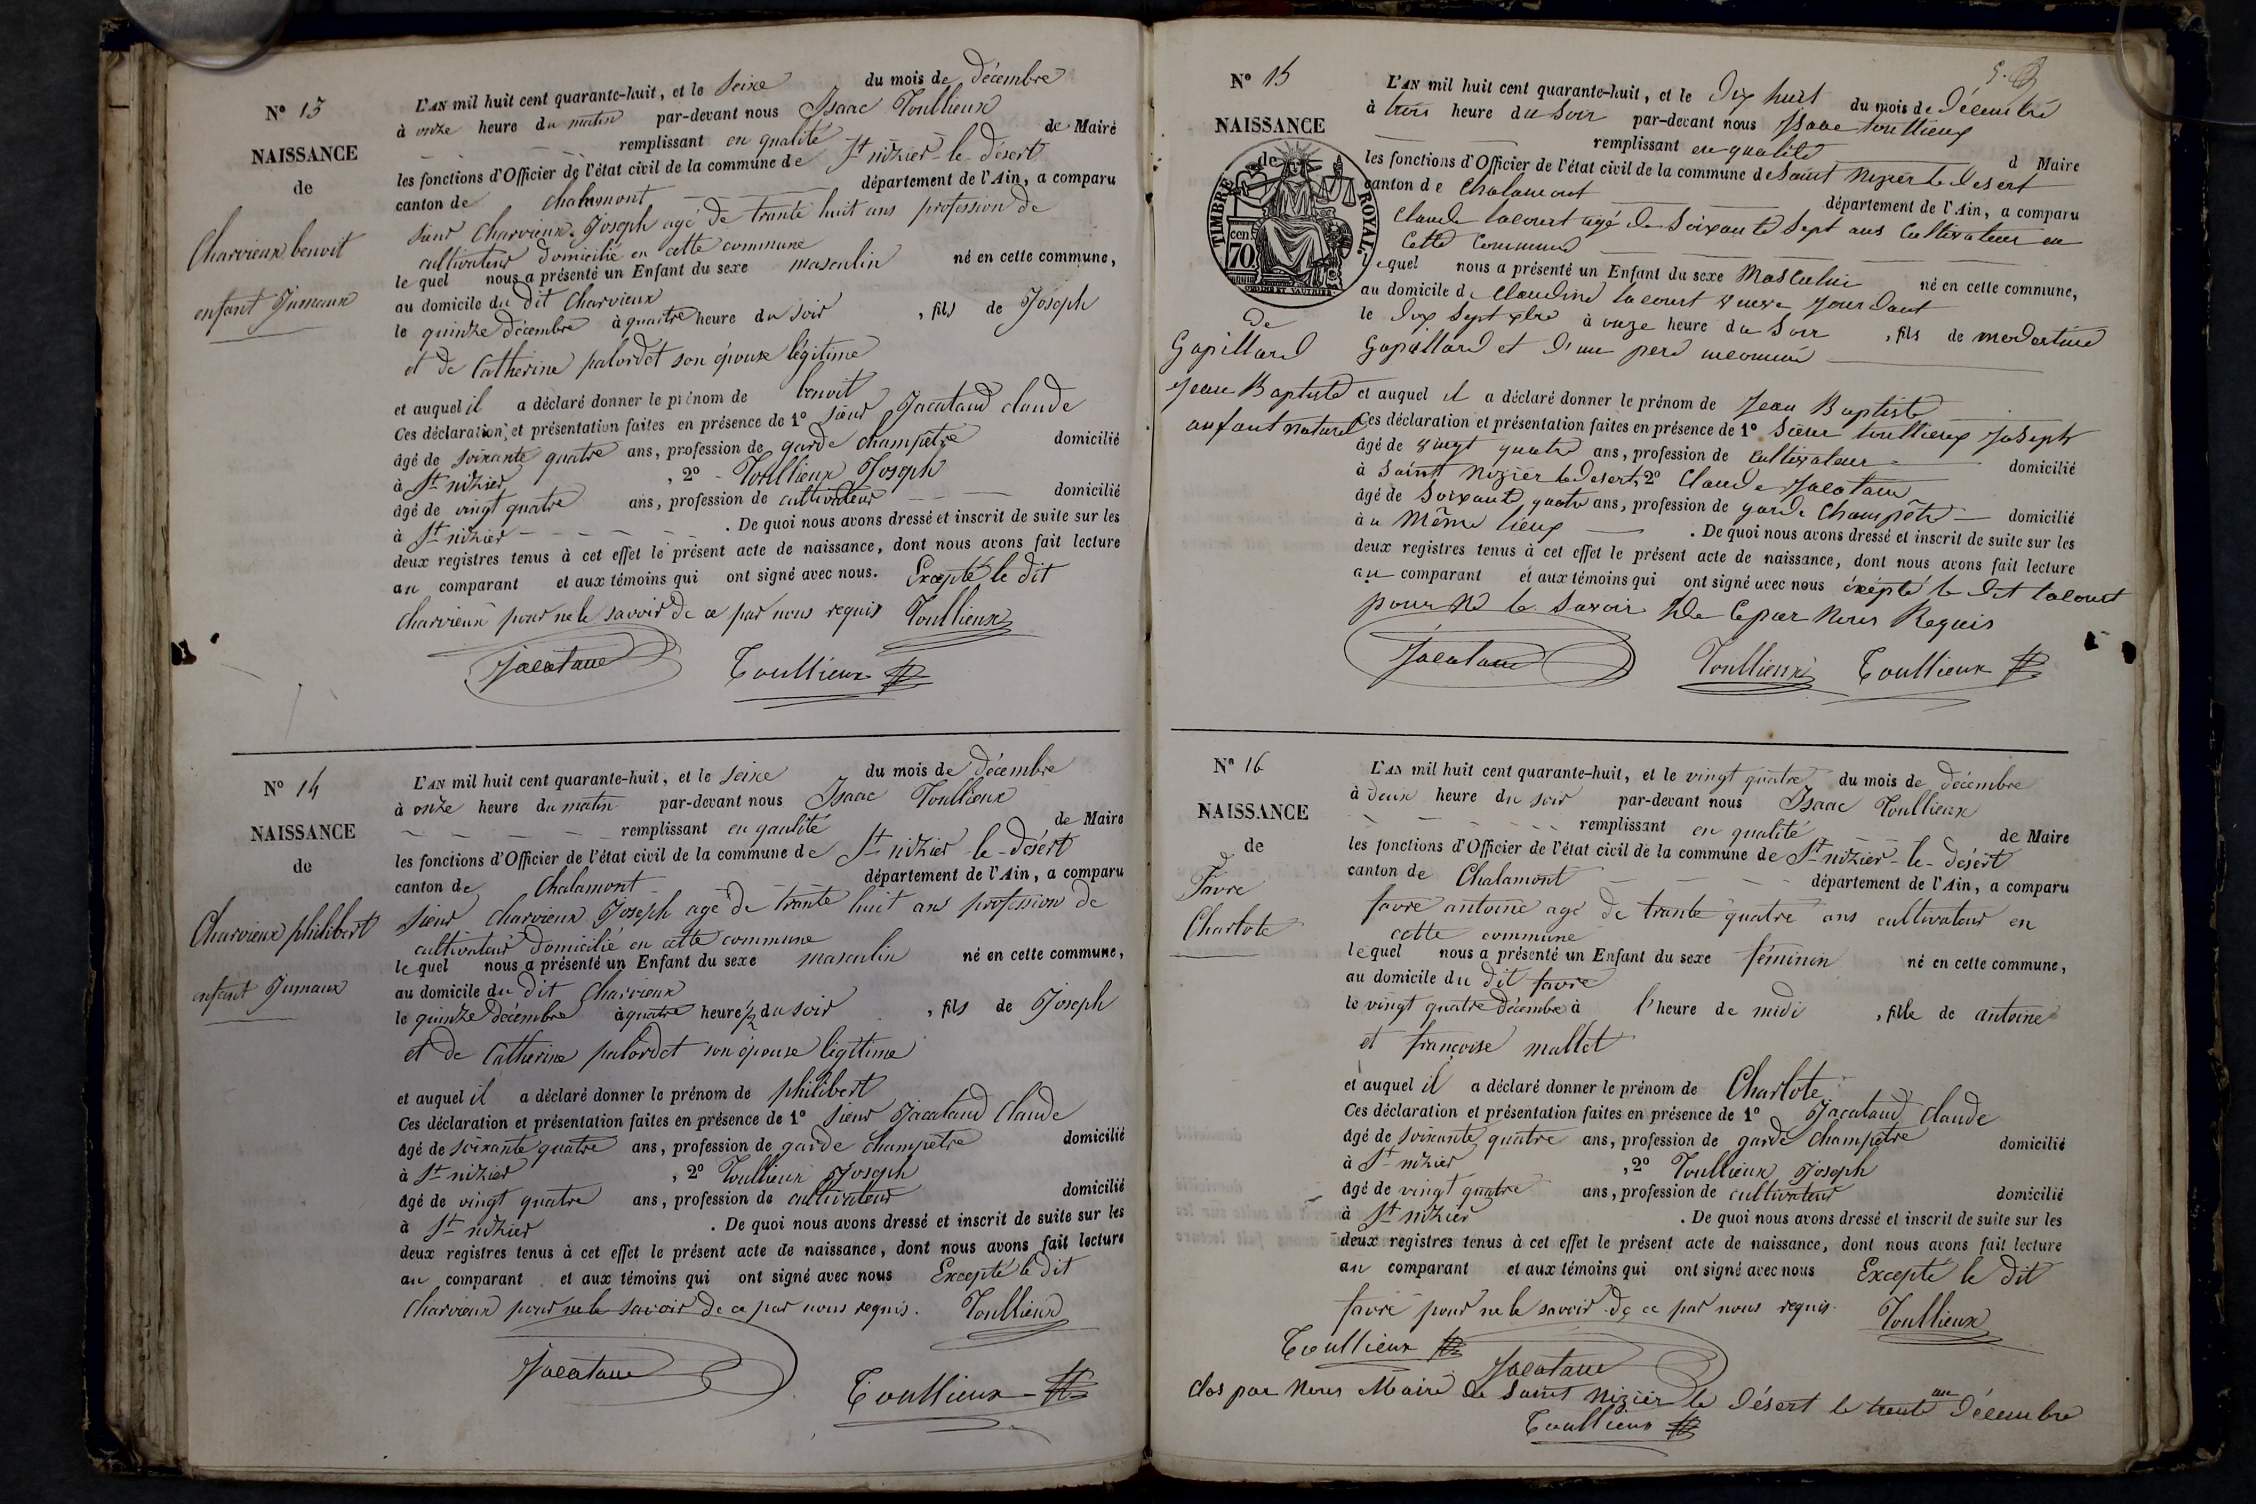 N° 13
NAISSANCE
de
Charvieux benoit
enfant Jumeaux
L'AN mil huit cent quarante-huit, et le seize du mois de décembre
à onze heure du matin par-devant nous Isaac Toullieux
remplissant en qualité de Maire
les fonctions d'Officier de l'état civil de la commune de St nizier-le-désert
canton de chalamont département de l'Ain, a comparu
sieur Charvieux Joseph agé de trante huit ans profession de
cultivateur domicilié en cette commune
le quel nous a présenté un Enfant du sexe masculin né en cette commune,
au domicile du dit Charvieux
le quinze décembre à quatre heure du soir, fils de Joseph
et de Catherine palordet son épouse légitime
et auquel il a déclaré donner le prénom de benoit
Ces déclaration, et présentation faites en présence de 1° sieur Jacataud claude
âgé de soixante quatre ans, profession de garde champêtre domicilié
à St nizier, 2° Toullieux Joseph
âgé de vingt quatre ans, profession de cultivateur domicilié
à St nizier. De quoi nous avons dressé et inscrit de suite sur les
deux registres tenus à cet effet le présent acte de naissance, dont nous avons fait lecture
au comparant et aux témoins qui ont signé avec nous. Excepté le dit
charvieux pour ne le savoir de ce par nous requis Toullieux
Jacataud Toullieux
N° 14
NAISSANCE
de
Charvieux philibert
enfant Jumaux
L'AN mil huit cent quarante-huit, et le seize du mois de décembre
à onze heure du matin par-devant nous Isaac Toullieux
remplissant en qaulité de Maire
les fonctions d'Officier de l'état civil de la commune de St nizier-le-désert
canton de Chalamont département de l'Ain, a comparu
sieur charvieux Joseph agé de trante huit ans profession de
cultivateur domicilié en cette commune
le quel nous a présenté un Enfant du sexe masculin né en cette commune,
au domicile du dit Charvieux
le quinze décembre à quatre heure 1/2 du soir, fils de Joseph
et de Catherine palordet son épouse légitime
et auquel il a déclaré donner le prénom de philibert
Ces déclaration et présentation faites en présence de 1° sieur Jacataud Claude
âgé de soixante quatre ans, profession de garde champetre domicilié
à St nizier, 2° Toullieux Joseph
âgé de vingt quatre ans, profession de cultivateur domicilié
à St nizier. De quoi nous avons dressé et inscrit de suite sur les
deux registres tenus à cet effet le présent acte de naissance, dont nous avons fait lecture
au comparant et aux témoins qui ont signé avec nous Excepté le dit
Charvieux pour ne le savoir de ce par nous requis. Toullieux
Jacataud
Toullieux
N° 15
NAISSANCE
de
TIMBRE ROYAL
cen. 70
de
Gapillard
Jean Baptiste
enfant naturel
L'AN mil huit cent quarante-huit, et le dix huit du mois de décembre
à trois heure du soir par-devant nous Isaac toullieux
remplissant en qualité d Maire
les fonctions d'Officier de l'état civil de la commune de Saint Nizier le Desert
canton de Chalamont département de l'Ain, a comparu
claude lacourt agé de soixante sept ans cultivateur en
cette commune
lequel nous a présenté un Enfant du sexe Masculin né en cette commune,
au domicile de Claudine lacourt veuve Jourdant
le dix sept xbre à onze heure du soir, fils de modestine
Gapillard et d'un pere inconnu
et auquel il a déclaré donner le prénom de Jean Baptiste
Ces déclaration et présentation faites en présence de 1° sieur toullieux Joseph
âgé de vingt quatre ans, profession de cultivateur domicilié
à Saint Nizier le desert, 2° Claude Jacataud
âgé de soixante quatre ans, profession de garde Champêtre domicilié
au Même lieux. De quoi nous avons dressé et inscrit de suite sur les
deux registres tenus à cet effet le présent acte de naissance, dont nous avons fait lecture
au comparant et aux témoins qui ont signé avec nous éxépté le dit lacourt
pour ne le savoir de ce par Nous Requis
Jacataud Toullieux Toullieux
N° 16
NAISSANCE
de
Favre
Charlote
L'AN mil huit cent quarante-huit, et le vingt quatre du mois de décembre
à deux heure du soir par-devant nous Isaac Toullieux
remplissant en qualité de Maire
les fonctions d'Officier de l'état civil de la commune de St nizier-le-désért
canton de Chalamont département de l'Ain, a comparu
favre antoine agé de trante quatre ans cultivateur en
cette commune
lequel nous a présenté un Enfant du sexe féminin né en cette commune,
au domicile du dit favre
le vingt quatre décembre à l'heure de midi, fille de antoine
et françoise mallet
et auquel il a déclaré donner le prénom de Charlote
Ces déclaration et présentation faites en présence de 1° Jacataud Claude
âgé de soixante quatre ans, profession de garde champetre domicilié
à St nizier, 2° Toullieux Joseph
âgé de vingt quatre ans, profession de cultivateur domicilié
à St nizier. De quoi nous avons dressé et inscrit de suite sur les
deux registres tenus à cet effet le présent acte de naissance, dont nous avons fait lecture
au comparant et aux témoins qui ont signé avec nous Excepté le dit
favre pour ne le savoir de ce par nous requis. Toullieux
Toullieux Jacataud
clos par Nous Maire de Saint Nizier le désert le trente un décembre
Toullieux